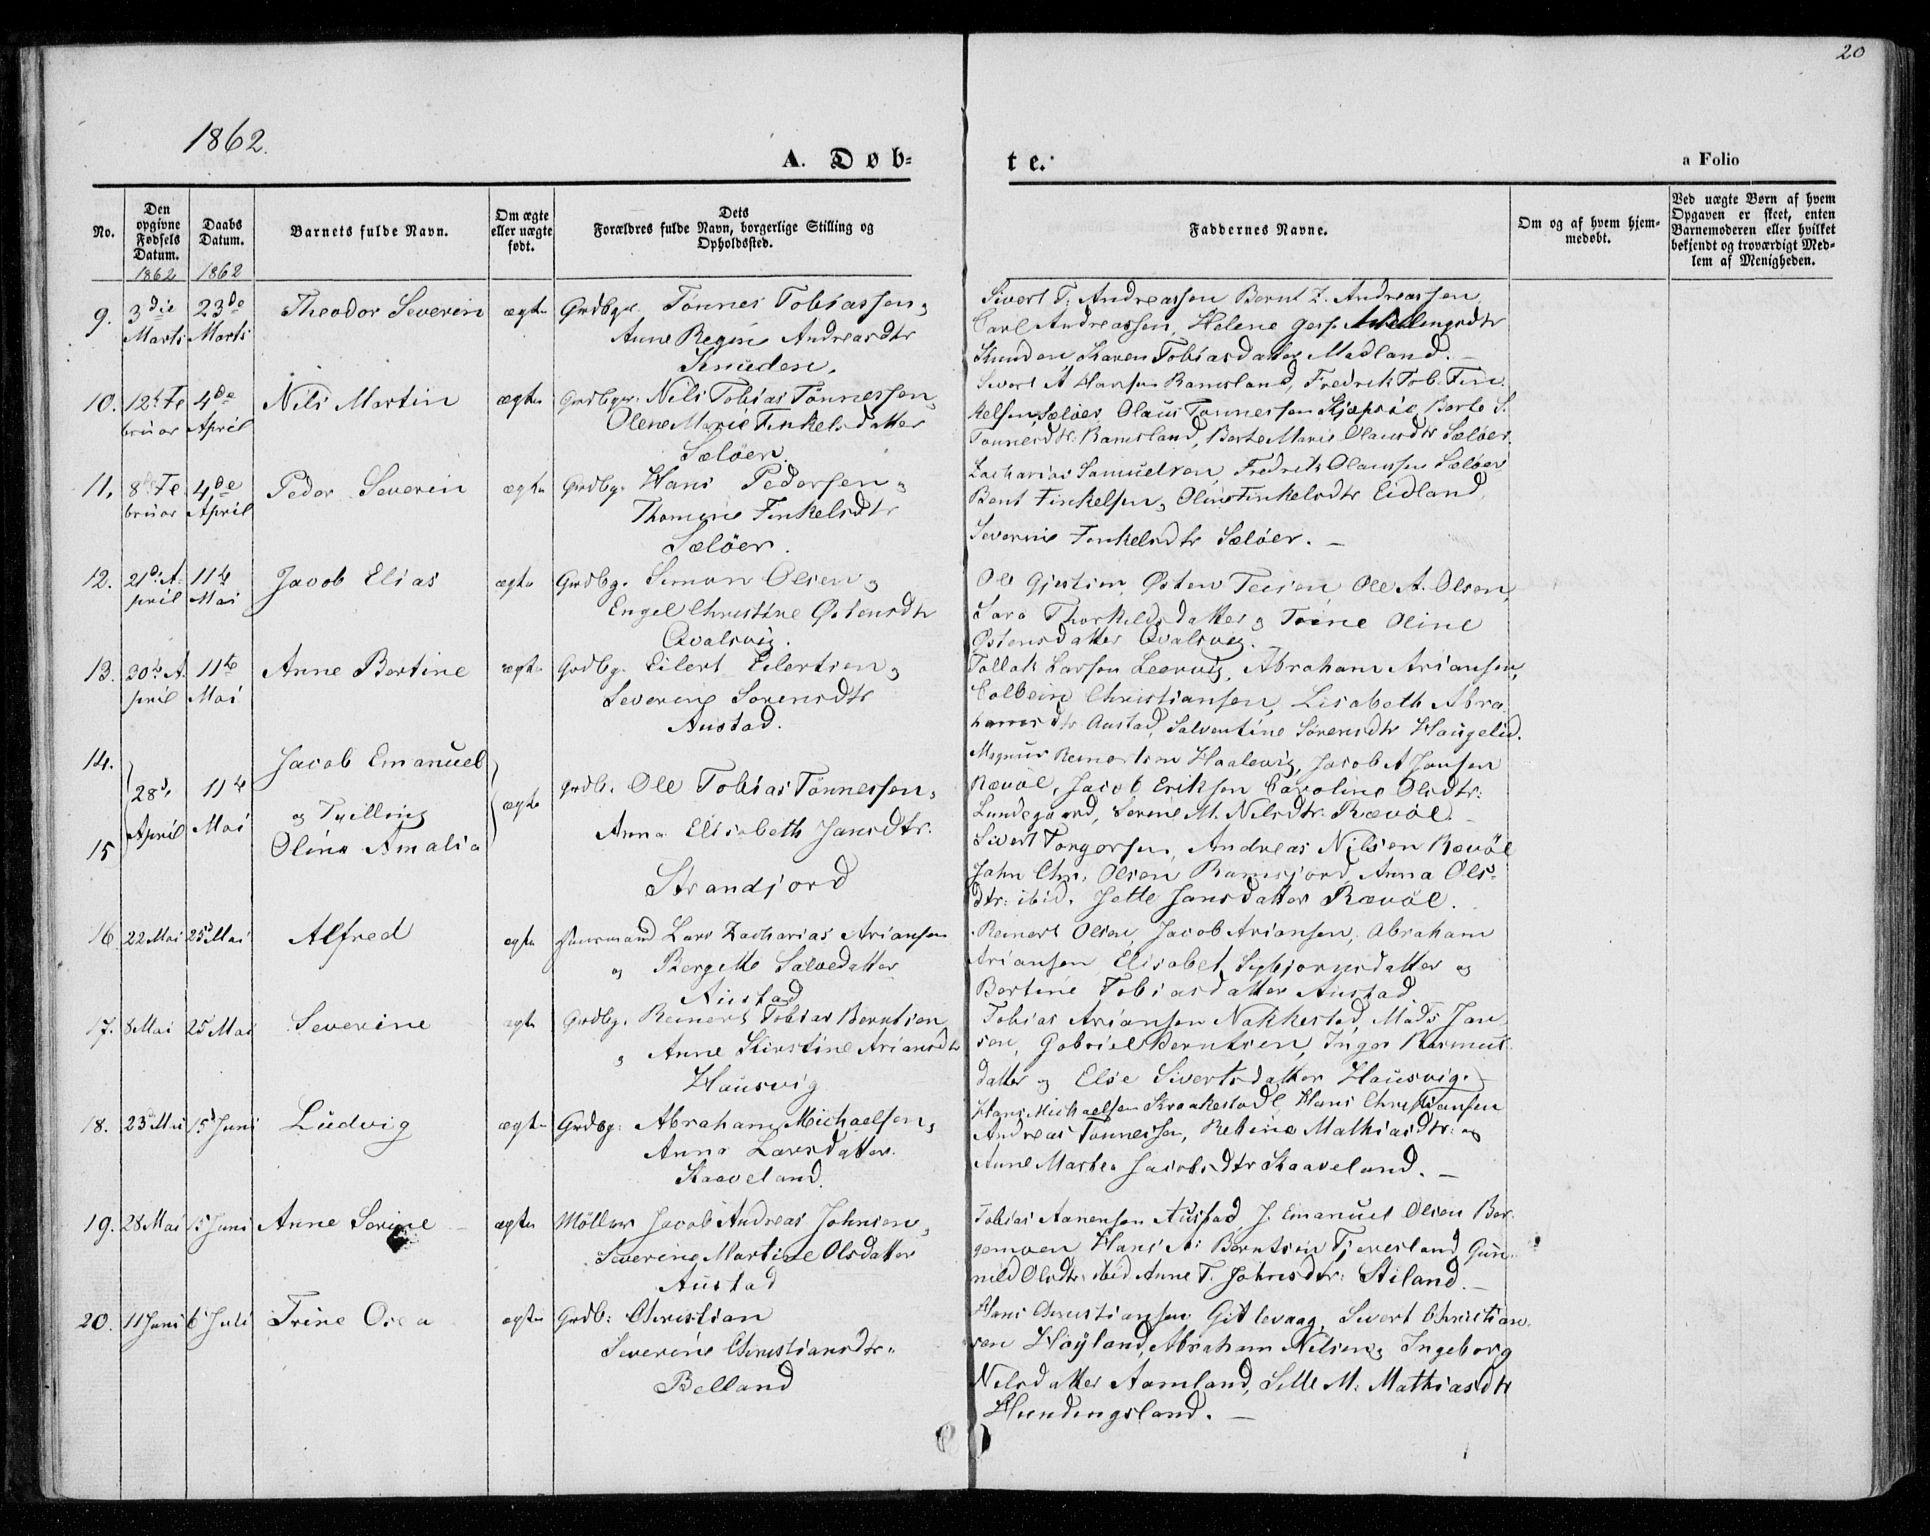 20
1862.
A. Døb-
te.
a Folio
No.
Den opgivne Fødsels Datum.
1862
Daabs Datum.
1862
Barnets fulde Navn.
Om ægte eller uægte født.
Dets
Forældres fulde Navn, borgerlige Stilling og Opholdssted.
Faddernes Navne.
Om og af hvem hjemmedøbt.
Ved uægte Børn af hvem Opgaven er skeet, enten Barnemoderen eller hvilket bekjendt og troværdigt Medlem af Menigheden.
9. 3die Marts 23de Marts Theodor Severin ægte Grdbgr Tønnes Tobiassen,
Anne Regine Andreasdtr
Knuden.
Sivert T. Andreassen Bernt Z. Andreassen
Carl Andreassen, Helene
Knuden Karen Tobiasdatter Madland. –
10. 12te Februar 4de April Nils Martin ægte Grdbgr. Nils Tobias Tønnessen,
Olene Marie Tinkelsdatter
Sæløer.
Sivert A Hansen Ramsland, Fredrik Tob. Tin
kelsen Sæløer, Olaus Tønnessen Berte S.
Tønnesdtr. Ramsland, Berte Marie Olausdtr Sæløer.
11. 8de Februar 4de April Peder Severin ægte Grdbg. Hans Pedersen,
Thomine Tinkelsdtr
Sæløer.
Zacharias Samuelsen, Fredrik Olaussen Sæløer
Bent Tinkelsen, Oline Tinkelsdtr Eidland,
Severine Tinkelsdtr Sæløer. –
12. 21de April 11te Mai Jacob Elias ægte Grdbg. Simon Olsen,
Engel Christine Østensdtr
Qvalsvig.
Ole Østen Ole A. Olsen,
Sara Thorkildsdatter, Trine Oline
Østensdatter Qvalsvig.
13. 30te April 11te Mai Anne Bertine ægte Grdbg. Eilert Eilertsen,
Severine Sørensdtr
Austad.
Tollak Larsen Leervig, Abraham Ariansen,
Colbein Christiansen, Lisabeth Abra
hamsdtr Austad, Salventine Sørensdtr Haugelid.
14. Jacob Emanuel
28de April 11te Mai og Tvilling ægte Grdb. Ole Tobias Tønnessen,
15 Olina Amalia
Anna Elisabeth Jansdtr.
Strandfjord
Magnus Reinertsen Haalevig, Jacob A Jansen
Rævøl, Jacob Eriksen Caroline Olsdtr:
Lundegaard, Serine M. Nilsdtr. Rævøl. –
Sivert Torgersen, Andreas Nilsen Rævøl
John Chr. Olsen Ramsfjord, Anna Ols-
dtr: ibid. Jette Jansdatter Rævøl.
16 22 Mai 25 Mai Alfred ægte Huusmand Lars Zacharias Ariansen
og Bergitte Salvedatter
Austad
Reinert Olsen, Jacob Ariansen, Abraham
Ariansen Elisabet Sigbjørnsdatter og
Bertine Tobiasdatter Austad.
17. 8 Mai 25 Mai Severine ægte Grdbg. Reinert Tobias Berntsen
, Anne Kirstine Ariansdtr
Hausvig
Tobias Ariansen Nakkestad, Mads Jan
sen, Gabriel Berntsen, Inger Rasmus
datter og Else Sivertsdatter Hausvig.
18. 23 Mai 15 Juni Ludvig ægte Grdbg: Abraham Michaelsen,
Anna Larsdatter
Skaaveland.
Hans Michaelsen Kraakestadl, Hans Christiansen
Andreas Tønnessen, Rebine Mathiasdtr: og
Anne Marthea Jacobsdtr Skaaveland. –
19. 28 Mai 15 Juni Anne Serine ægte Møller Jacob Andreas Johnsen,
Severine Martine Olsdatter
Austad
Tobias Aanensen Austad, J. Emanuel Olsen Ber
gemoen Hans A. Berntsen Tjersland, Gun-
nild Olsdtr: ibid Anne T. Johnsdtr: Stiland. –
20. 11 Juni 6 Juli Trine Osea ægte Grdb: Christian
Severine Christiansdtr.
Belland
Hans Christiansen Gitlevaag, Sivert Christian-
sen Høyland, Abraham Nilsen, Ingeborg
Nilsdatter Aamland, Sille M. Mathiasdtr
Hundingsland. –